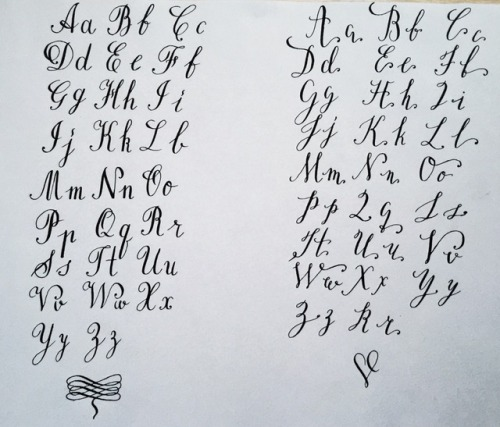 Aa Bb Cc
Dd Ee Ff
Gg Hh Ii
Jj Kk Ll
Mm Nn Oo
Pp Qq Rr
Ss Tt Uu
Vv Ww Xx
Yy Zz
Aa Bb Cc
Dd Ee Ff
Gg Hh Ii
Jj Kk Ll
Mm Nn Oo
Pp Qq Ss
Tt Uu Vv
Ww Xx Yy
Zz Rr